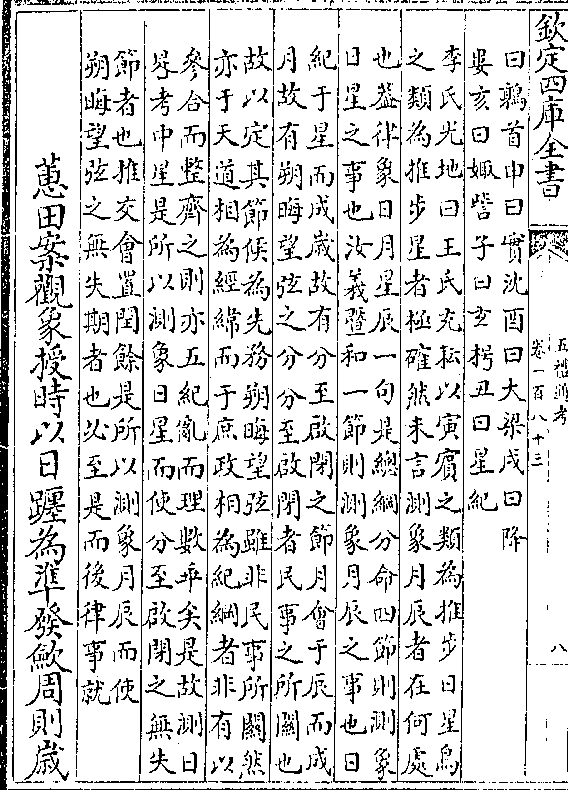 欽定四庫全書
五禮通考
卷一百八十三
八
曰鶉首申曰實沈酉曰大梁戌曰降
婁亥曰娵訾子曰玄枵丑曰星紀
李氏光地曰王氏充耘以寅賓之類為推步日星鳥
之類為推步星者極確然未言測象月辰者在何處
也蓋律象日月星辰一句是總綱分命四節則測象
日星之事也汝羲暨和一節則測象月辰之事也日
紀于星而成歲故有分至啟閉之節月會于辰而成
月故有朔晦望弦之分分至啟閉者民事之所關也
故以定其節候為先務朔晦望弦雖非民事所關然
亦于天道相為經緯而于庶政相為紀綱者非有以
參合而整齊之則亦五紀亂而理數乖矣是故測日
晷考中星是所以測象日星而使分至啟閉之無失
節者也推交會置閏餘是所以測象月辰而使
朔晦望弦之無失期者也必至是而後律事就
蕙田案觀象授時以日躔為準發斂周則歲